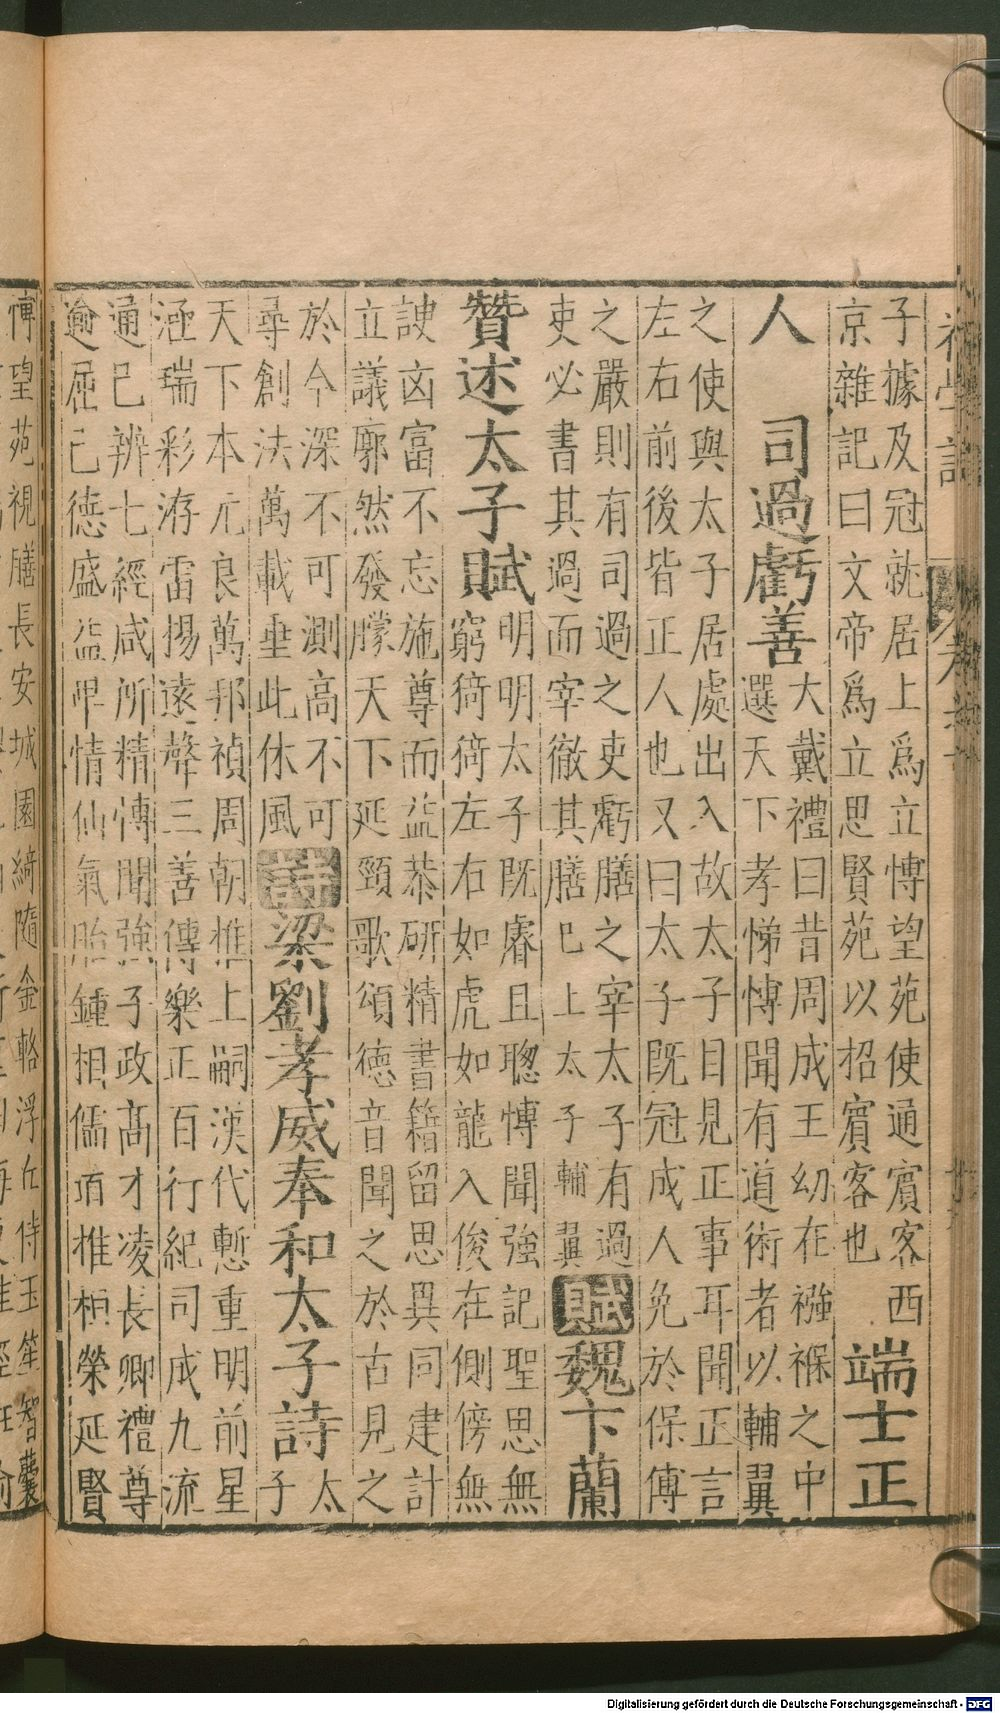 子據及冠就居上爲立愽望苑使通賓客西
京雜記曰文帝爲立思賢苑以招賓客也
端士正
人　司過虧善
大戴禮曰昔周成王幼在襁褓之中
選天下孝悌愽聞有道術者以輔翼
之使與太子居處出入故太子目見正事耳聞正言
左右前後皆正人也又曰太子既冠成人免於保傅
之嚴則有司過之吏虧膳之宰太子有過
吏必書其過而宰徹其膳巳上太子輔翼
賦魏卞蘭
贊述太子賦
明明太子既睿且聦愽聞強記聖思無
窮猗猗左右如虎如龍入俊在側傍無
諛凶富不忘施尊而益恭研精書籍留思異同建計
立議廓然發矇天下延頸歌頌徳音聞之於古見之
於今深不可測高不可
尋創法萬載垂此休風
詩梁劉孝威奉和太子詩
太
子
天下本元良萬邦禎周朝推上嗣漢代慙重明前星
涵瑞彩洊雷揚遠聲三善傳樂正百行紀司成九流
通巳辨七經咸所精愽聞強子政髙才凌長卿禮尊
逾屈己徳盛益甲情仙氣貽鍾相儒項推桓榮延賢
愽望苑視膳長安城園綺隨金輅浮丘侍玉笙智囊
Digitalisierung gefördert durch die Deutsche Forschungsgemeinschaft - DFG